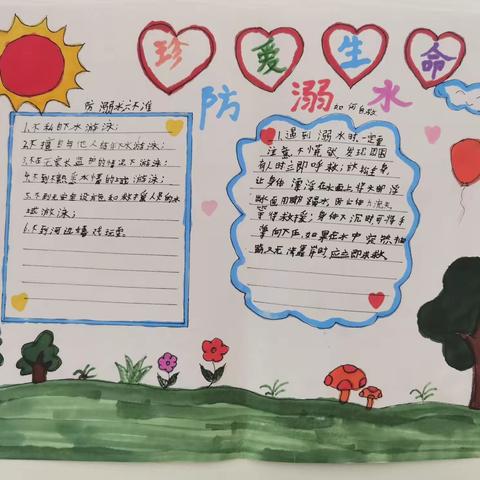 珍爱生命
防溺水
防溺水六不准
如何自救
1.不私自下水游泳；
2.不擅自与他人结伴下水游泳；
3.不在无家长监护的情况下游泳；
4.不到不熟悉水情的水域游泳；
5.不到无安全设施和救援人员的水
域游泳；
6.不到河边嬉戏玩耍
1.遇到溺水时，一定要
注意不惊慌，发现周围
有人时立即呼救；放松全身，
让身体漂浮在水面上，
手掌向下压；如果在水中突然抽
筋，又无法靠岸时，应立即求救。